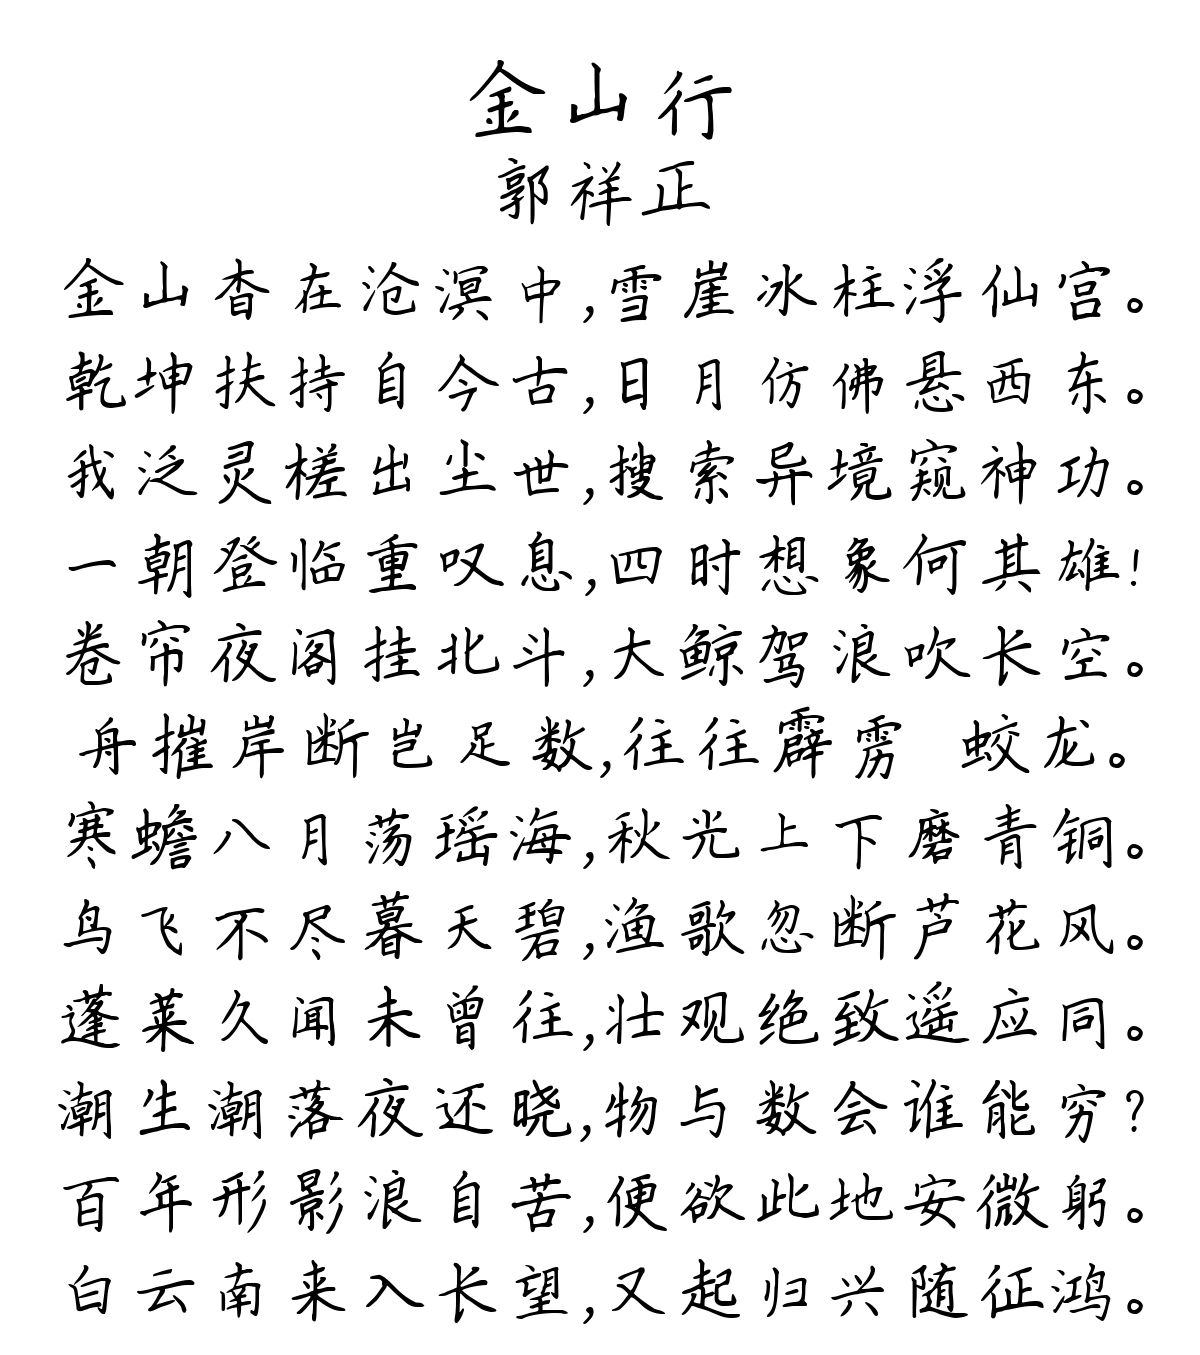 金山行
郭祥正
金山杳在沧溟中,雪崖冰柱浮仙宫。
乾坤扶持自今古,日月仿佛悬西东。
我泛灵槎出尘世,搜索异境窥神功。
一朝登临重叹息,四时想象何其雄!
卷帘夜阁挂北斗,大鲸驾浪吹长空。
舟摧岸断岂足数,往往霹雳 蛟龙。
寒蟾八月荡瑶海,秋光上下磨青铜。
鸟飞不尽暮天碧,渔歌忽断芦花风。
蓬莱久闻未曾往,壮观绝致遥应同。
潮生潮落夜还晓,物与数会谁能穷?
百年形影浪自苦,便欲此地安微躬。
白云南来入长望,又起归兴随征鸿。